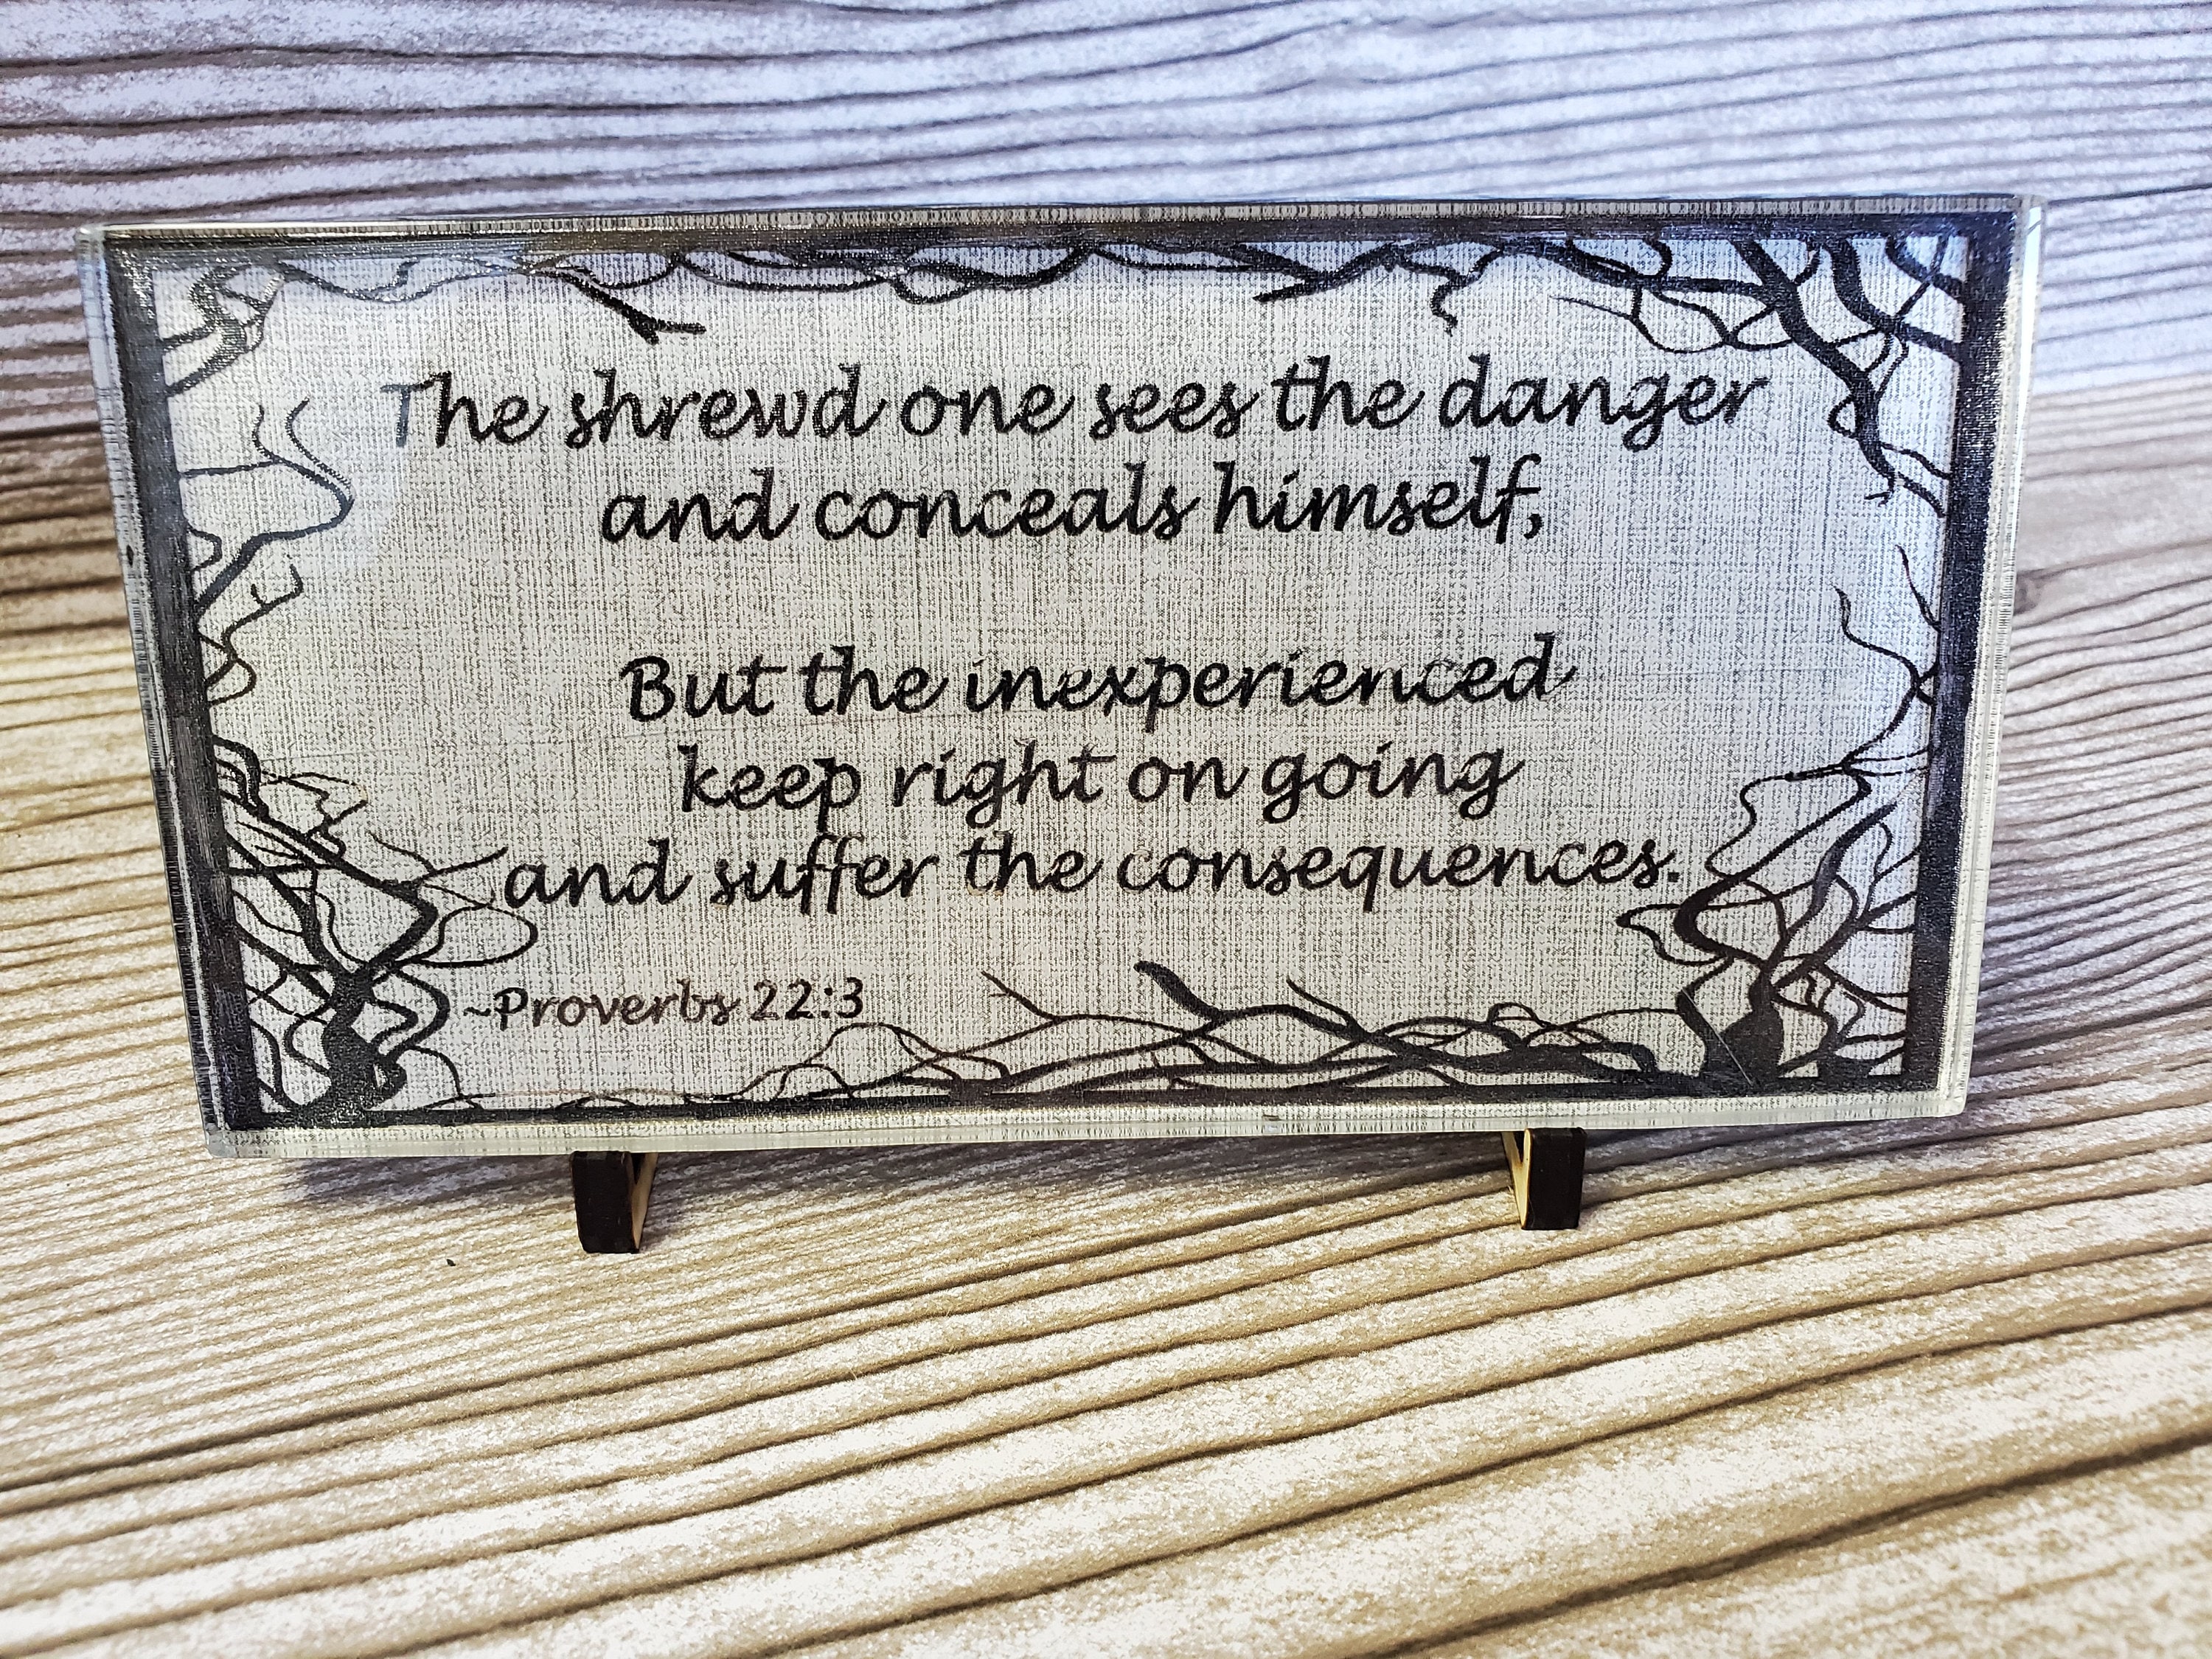 The shrewd one sees the danger
and conceals himself,
But the inexperienced
keep right on going
and suffer the consequences.
~Proverbs 22:3